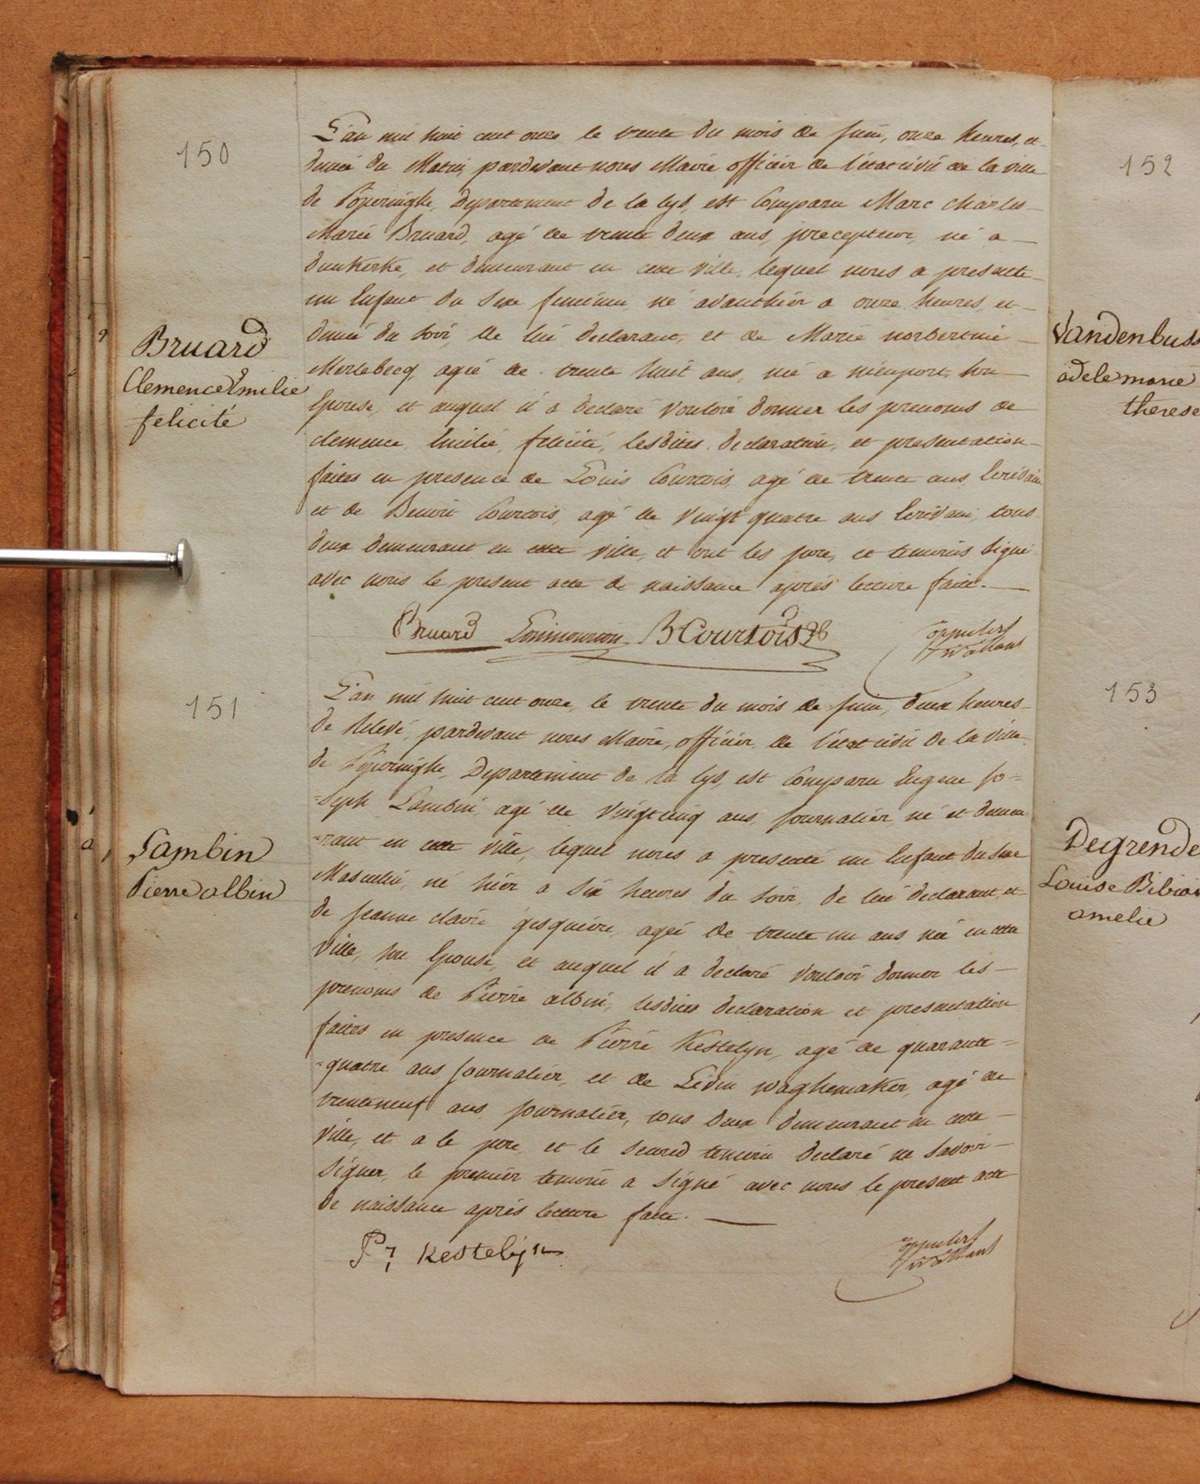 150
L'an mil huit cent onze le trente du mois de juin, onze heures, et
dimié du Matin, pardevant nous Maire officier de l'état civil de la ville
de Poperinghe, Departement de la Lys, est Comparu Marc Charles
Marie Bruard, agé de trente deux ans, precepteur, né a
dunkerke, et demeurant en cette ville, lequel nous a presenté
un Enfant du sexe feminin né avanthier a onze heures, et
dimié du soir, de lui declarant, et de Marie norbertine
Merlebecq, agée de trente huit ans, née a nieuport, son
Epouse, et auquel il a declaré vouloir donner les prenoms de
clemence Emilie, felicité, lesdites declaration, et presentation
faites en presence de Louis Courtois, agé de trente ans Ecrivain
et de Benoit Courtois, agé de vingt quatre ans Ecrivain, tous
deux demeurant en cette ville, et ont les pere, et temoins signé
avec nous le present acte de naissance après lecture faite.
Bruard
Clemence Emilie
felicité
Bruard BCourtois
151
L'an mil huit cent onze, le trente du mois de juin, deux heures
de relevé, pardevant nous Maire, officier de l'état civil de la ville
de Poperinghe, Departement de la Lys, est Comparu Eugene Jo=
=seph Sambin, agé de vingt cinq ans journalier, né et demeu
=rant en cette ville, lequel nous a presenté un Enfant du sexe
Masculin, né hier a six heures du soir, de lui declarant, et
de Jeanne claire gesquiere, agée de trente un ans née en cette
ville, son Epouse, et auquel il a declaré vouloir donner les
prenoms de Pierre albin, lesdites declaration et presentation
faites en presence de Pierre Kestelyn, agé de quarante=
=quatre ans journalier, et de Lidvin waghemaker, agé de
trenteneuf ans, journalier, tous deux demeurant en cette
ville, et a le pere, et le second temoin declaré ne savoir
signer, le premier temoin a signé avec nous le present acte
de naissance après lecture faite.
Sambin
Pierre albin
P. Kestelijn
152
Vandenbuss
adele marie
therese
153
Degrende
Louise Bibian
amelie